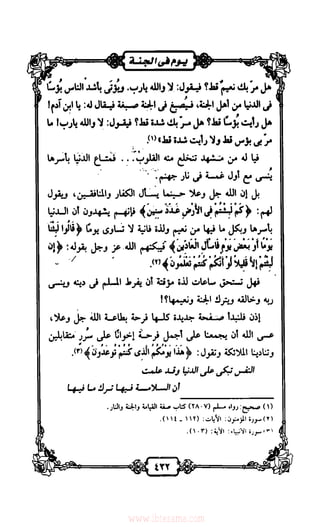 يوم فى الجنة
هل مرّ بك نعيم قط؟ فيقول: لا والله يارب. ويُؤتَى بأشد الناس بُؤسًا
فى الدنيا من أهل الجنة، فيُصبغ فى الجنة صبغة فيقال له: يا ابن آدم!
هل رأيت بُؤسًا قط؟ هل مرّ بك شدة قط؟ فيقول: لا والله يارب! ما
مرّ بى بؤس قط ولا رأيت شدة قط» (١).
فيا له من مشهد تنخلع منه القلوب... فمتاع الدنيا بأسرها
يُنسى مع أول غمسة فى نار جهنم.
بل إن الله جل وعلا حينما يسأل الكفار والمنافقين، ويقول
لهم: ﴿كَمْ لَبِثْتُمْ فِي الْأَرْضِ عَدَدَ سِنِينَ﴾ فإنهم يشهدون أن الدنيا
بأسرها وبكل ما فيها من نعيم ولذة فانية لا تساوى يومًا ﴿قَالُوا لَبِثْنَا
يَوْمًا أَوْ بَعْضَ يَوْمٍ فَاسْأَلِ الْعَادِّينَ﴾ فيبكتهم الله عز وجل بقوله: ﴿إِن
لَّبِثْتُمْ إِلَّا قَلِيلًا لَّوْ أَنَّكُمْ كُنتُمْ تَعْلَمُونَ﴾ (٢).
فهل تستحق ساعات لذة مؤقتة أن يفرط المسلم فى دينه وينسى
ربه وخالقه ويترك الجنة ونعيمها؟!
إذن فلنبدأ صفحة جديدة كلها فرحة بطاعة الله جل وعلا،
عسى الله أن يجمعنا على أجمل فرحة إخوانًا على سرر متقابلين
وتنادينا الملائكة وتقول: ﴿هَذَا يَوْمُكُمُ الَّذِي كُنتُمْ تُوعَدُونَ﴾ (٣).
النفس تبكى على الدنيا وقد علمت
أن السلامة فيها ترك ما فيها
(١) صحيح: رواه مسلم (٢٨٠٧) كتاب صفة القيامة والجنة والنار.
(٢) سورة المؤمنون: الآيات: (١١٢ - ١١٤).
(٣) سورة الأنبياء: الآية: (١٠٣).
٤٢٢
www.ibtesama.com